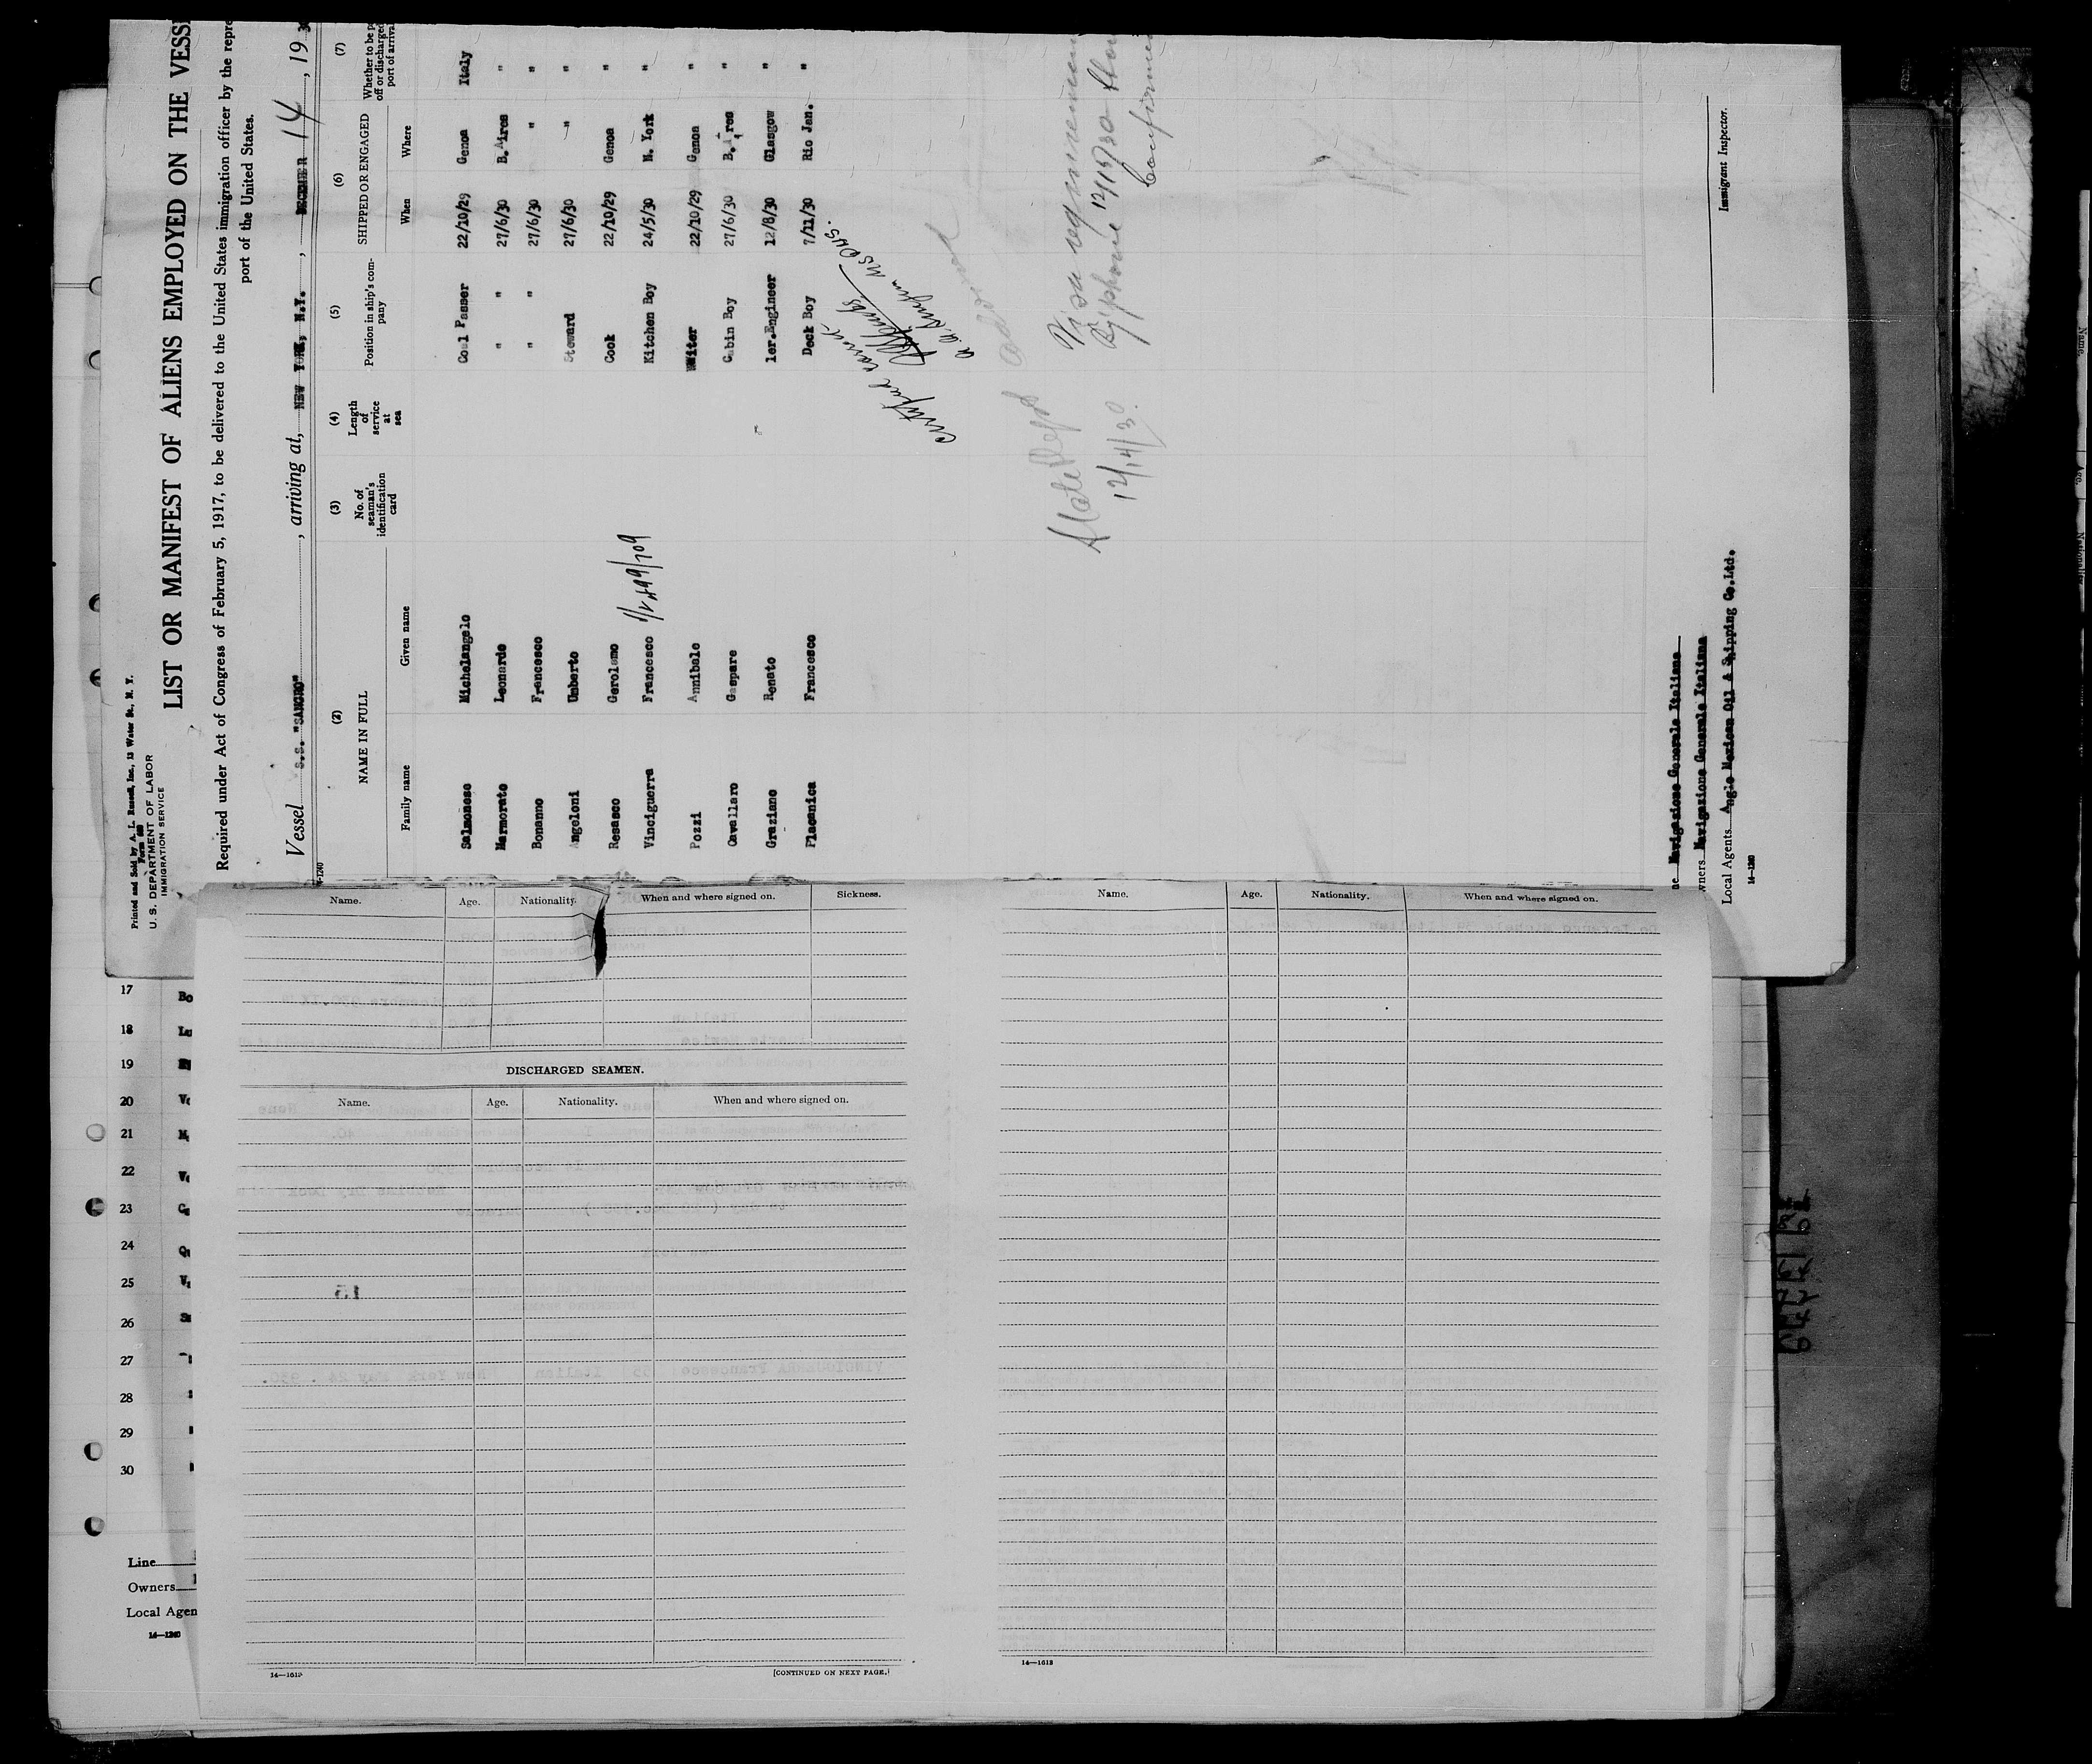 Printed and Sold by A. L. Russell, Inc., 13 Water St., N. Y.
U. S. DEPARTMENT OF LABOR
IMMIGRATION SERVICE
LIST OR MANIFEST OF ALIENS EMPLOYED ON THE VESS
Required under Act of Congress of February 5, 1917, to be delivered to the United States immigration officer by the repre
port of the United States.
Vessel S.S. "SANGRO", arriving at, NEW YORK, N.Y., DECEMBER 14, 19 30
14-1240
(2) (3) (4) (5) (6) (7)
NAME IN FULL No. of seaman's identification card Length of service at sea Position in ship's company SHIPPED OR ENGAGED Whether to be p off or discharged port of arrival
Family name Given name When Where
Salmonese Michelangelo Coal Passer 22/10/29 Genoa Italy
Marmorato Leonardo " " 27/6/30 B.Aires "
Bonanno Francesco " " 27/6/30 " "
Angeloni Umberto Steward 27/6/30 " "
Resasco Gerolamo Cook 22/10/29 Genoa "
Vinciguerra Francesco Kitchen Boy 24/5/30 N. York "
Pozzi Annibale Waiter 22/10/29 Genoa "
Cavallaro Gaspare Cabin Boy 27/6/30 B.Aires "
Graziano Renato 1er.Engineer 12/8/30 Glasgow "
Placanica Francesco Deck Boy 7/11/30 Rio Jan. "
Certified correct
State Dept advised
12/14/30.
Visa requirement
By phone 12/15/30
Confirmed
ne Navigazione Generale Italiana
wners Navigazione Generale Italiana
Local Agents Anglo Mexican Oil & Shipping Co.Ltd.
14-1240
Immigrant Inspector.
Name. Age. Nationality. When and where signed on. Sickness.
DISCHARGED SEAMEN.
Name. Age. Nationality. When and where signed on.
14—1613
[CONTINUED ON NEXT PAGE.]
Name. Age. Nationality. When and where signed on.
14—1613
17 Bo
18 La
19
20 Ve
21 M
22
23
24
25
26
27
28
29
30
Line
Owners
Local Agen
14—1240
Name. Age.